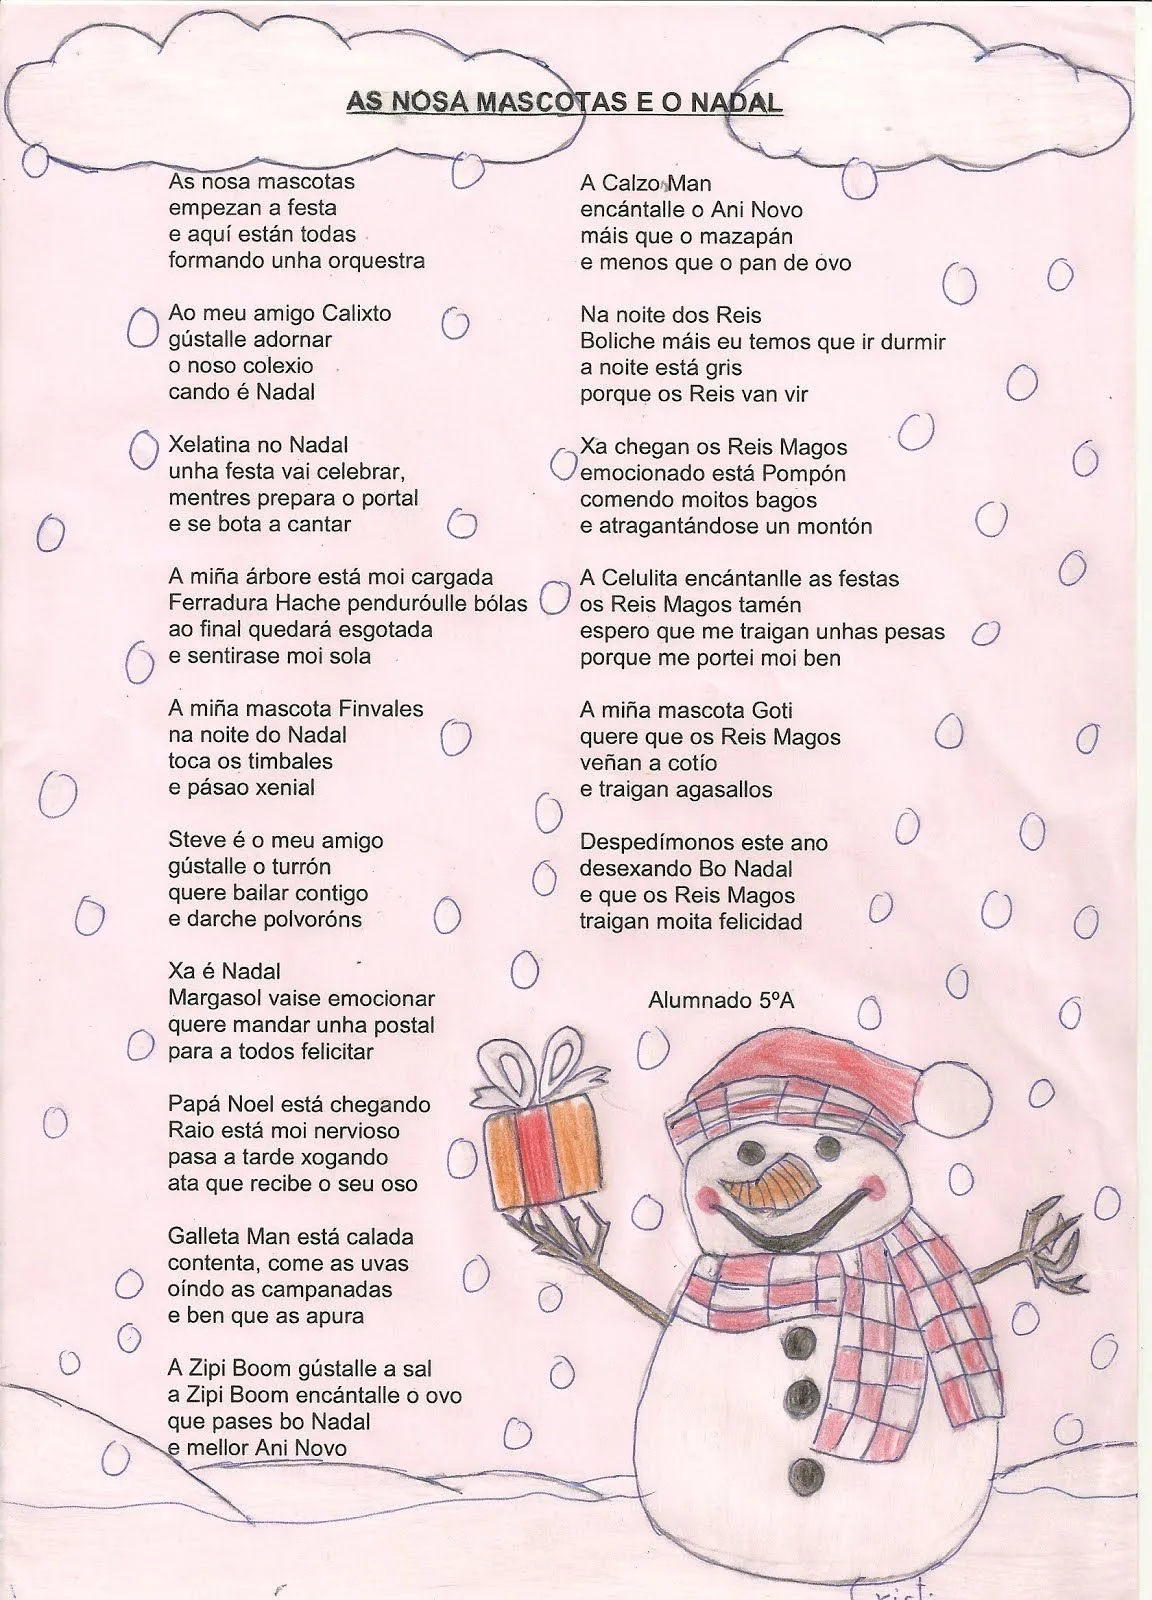 AS NOSA MASCOTAS E O NADAL
As nosa mascotas
empezan a festa
e aquí están todas
formando unha orquestra
Ao meu amigo Calixto
gústalle adornar
o noso colexio
cando é Nadal
Xelatina no Nadal
unha festa vai celebrar,
mentres prepara o portal
e se bota a cantar
A miña árbore está moi cargada
Ferradura Hache penduróulle bólas
ao final quedará esgotada
e sentirase moi sola
A miña mascota Finvales
na noite do Nadal
toca os timbales
e pásao xenial
Steve é o meu amigo
gústalle o turrón
quere bailar contigo
e darche polvoróns
Xa é Nadal
Margasol vaise emocionar
quere mandar unha postal
para a todos felicitar
Papá Noel está chegando
Raio está moi nervioso
pasa a tarde xogando
ata que recibe o seu oso
Galleta Man está calada
contenta, come as uvas
oíndo as campanadas
e ben que as apura
A Zipi Boom gústalle a sal
a Zipi Boom encántalle o ovo
que pases bo Nadal
e mellor Ani Novo
A Calzo Man
encántalle o Ani Novo
máis que o mazapán
e menos que o pan de ovo
Na noite dos Reis
Boliche máis eu temos que ir durmir
a noite está gris
porque os Reis van vir
Xa chegan os Reis Magos
emocionado está Pompón
comendo moitos bagos
e atragantándose un montón
A Celulita encántanlle as festas
os Reis Magos tamén
espero que me traigan unhas pesas
porque me portei moi ben
A miña mascota Goti
quere que os Reis Magos
veñan a cotío
e traigan agasallos
Despedímonos este ano
desexando Bo Nadal
e que os Reis Magos
traigan moita felicidad
Alumnado 5ºA